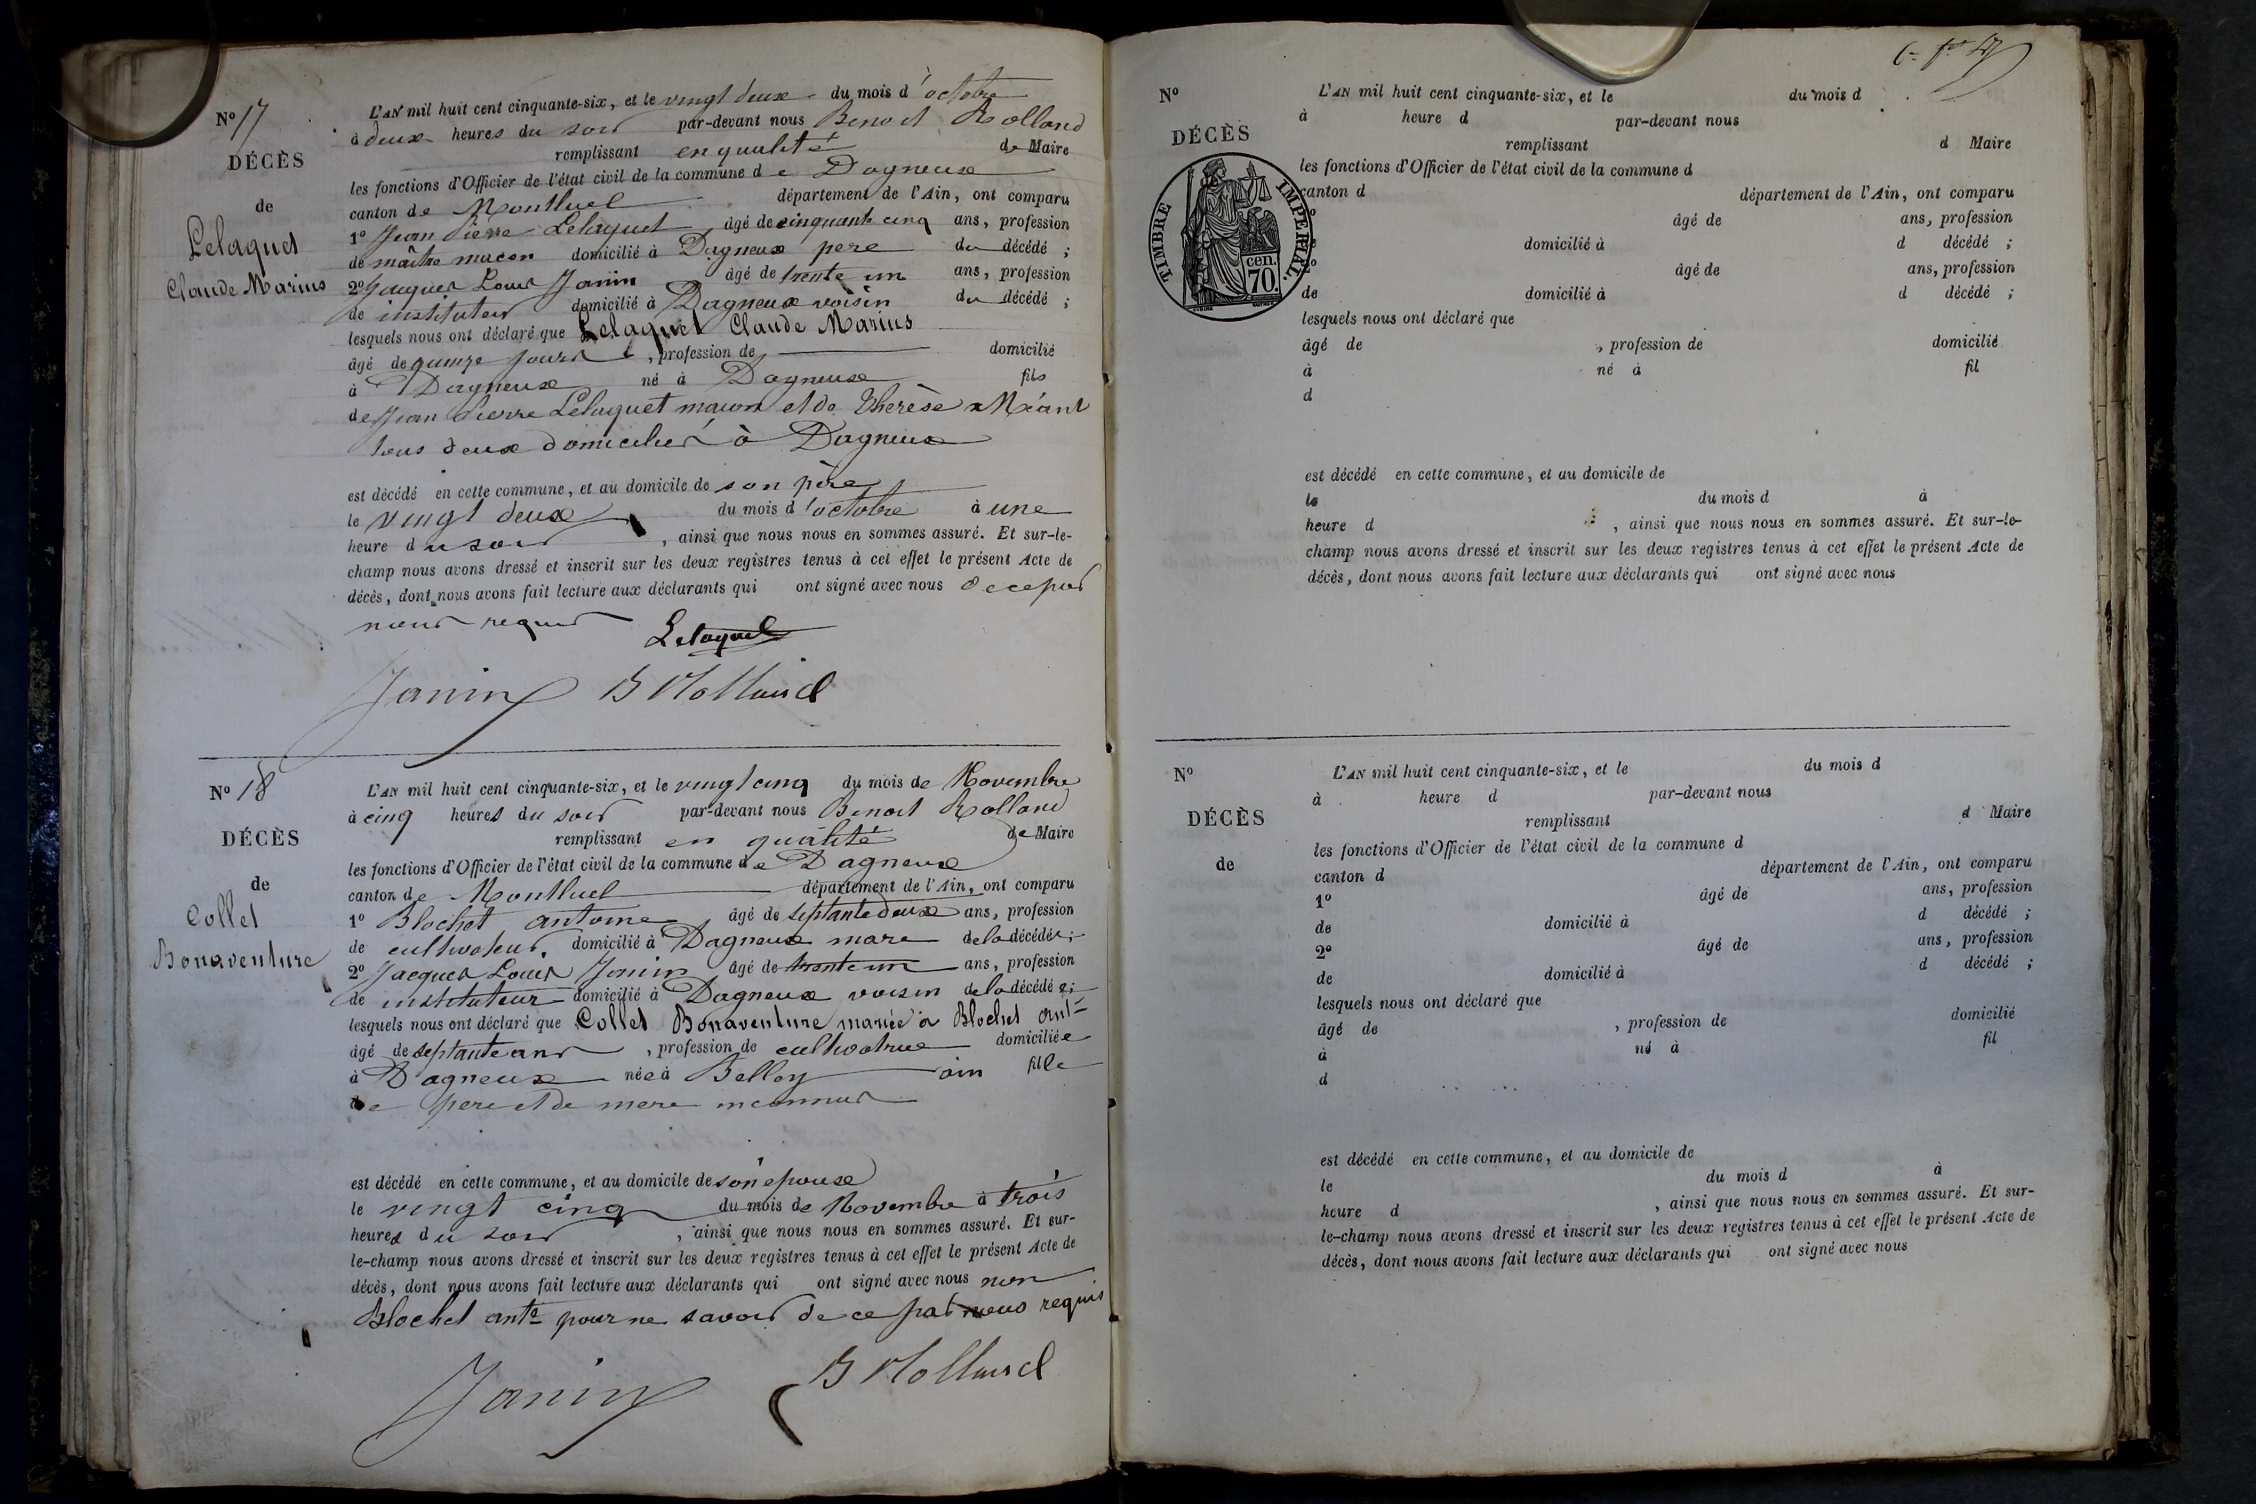 N° 17
DÉCÈS
de
Lelaquet
Claude Marius
L'AN mil huit cent cinquante-six, et le vingt deux du mois d'octobre
à deux heures du soir par-devant nous Benoit Rolland
remplissant en qualité de Maire
les fonctions d'Officier de l'état civil de la commune de Dagneux
canton de Montluel département de l'Ain, ont comparu
1° Jean Pierre Lelaquet âgé de cinquante cinq ans, profession
de maître macon domicilié à Dagneux pere du décédé ;
2° Jacques Louis Janin âgé de trente un ans, profession
de instituteur domicilié à Dagneux voisin du décédé ;
lesquels nous ont déclaré que Lelaquet Claude Marius
âgé de quinze jours, profession de domicilié
à Dagneux né à Dagneux fils
de Jean Pierre Lelaquet macon et de Thérèse Méant
tous deux domiciliés à Dagneux
est décédé en cette commune, et au domicile de son père
le vingt deux du mois d'octobre à une
heure du soir, ainsi que nous nous en sommes assuré. Et sur-le-
champ nous avons dressé et inscrit sur les deux registres tenus à cet effet le présent Acte de
décès, dont nous avons fait lecture aux déclarants qui ont signé avec nous de ce par
nous requis
Lelaquet
Janin B Rolland
N° 18
DÉCÈS
de
Collet
Bonaventure
L'AN mil huit cent cinquante-six, et le vingt cinq du mois de Novembre
à cinq heures du soir par-devant nous Benoit Rolland
remplissant en qualité de Maire
les fonctions d'Officier de l'état civil de la commune de Dagneux
canton de Montluel département de l'Ain, ont comparu
1° Blochet antoine âgé de septante deux ans, profession
de cultivateur domicilié à Dagneux mare de la décédée ;
2° Jacques Louis Janin âgé de trente un ans, profession
de instituteur domicilié à Dagneux voisin de la décédée ;
lesquels nous ont déclaré que Collet Bonaventure mariée a Blochet ant=
âgé de septante ans, profession de cultivatrice domiciliée
à Dagneux née à Belley ain fille
de pere et de mere inconnus
est décédé en cette commune, et au domicile de son epoux
le vingt cinq du mois de Novembre à trois
heures du soir, ainsi que nous nous en sommes assuré. Et sur-
le-champ nous avons dressé et inscrit sur les deux registres tenus à cet effet le présent Acte de
décès, dont nous avons fait lecture aux déclarants qui ont signé avec nous non
Blochet ante pour ne savoir de ce par nous requis
Janin B Rolland
N°
DÉCÈS
TIMBRE IMPÉRIAL.
70. cen.
L'AN mil huit cent cinquante-six, et le du mois d
à heure d par-devant nous
remplissant d Maire
les fonctions d'Officier de l'état civil de la commune d
canton d département de l'Ain, ont comparu
âgé de ans, profession
domicilié à d décédé ;
âgé de ans, profession
de domicilié à d décédé ;
lesquels nous ont déclaré que
âgé de , profession de domicilié
à né à fil
d
est décédé en cette commune, et au domicile de
le du mois d à
heure d , ainsi que nous nous en sommes assuré. Et sur-le-
champ nous avons dressé et inscrit sur les deux registres tenus à cet effet le présent Acte de
décès, dont nous avons fait lecture aux déclarants qui ont signé avec nous
N°
DÉCÈS
de
L'AN mil huit cent cinquante-six, et le du mois d
à heure d par-devant nous
remplissant d Maire
les fonctions d'Officier de l'état civil de la commune d
canton d département de l'Ain, ont comparu
1° âgé de ans, profession
de domicilié à d décédé ;
2° âgé de ans, profession
de domicilié à d décédé ;
lesquels nous ont déclaré que
âgé de , profession de domicilié
à né à fil
d
est décédé en cette commune, et au domicile de
le du mois d à
heure d , ainsi que nous nous en sommes assuré. Et sur-
le-champ nous avons dressé et inscrit sur les deux registres tenus à cet effet le présent Acte de
décès, dont nous avons fait lecture aux déclarants qui ont signé avec nous